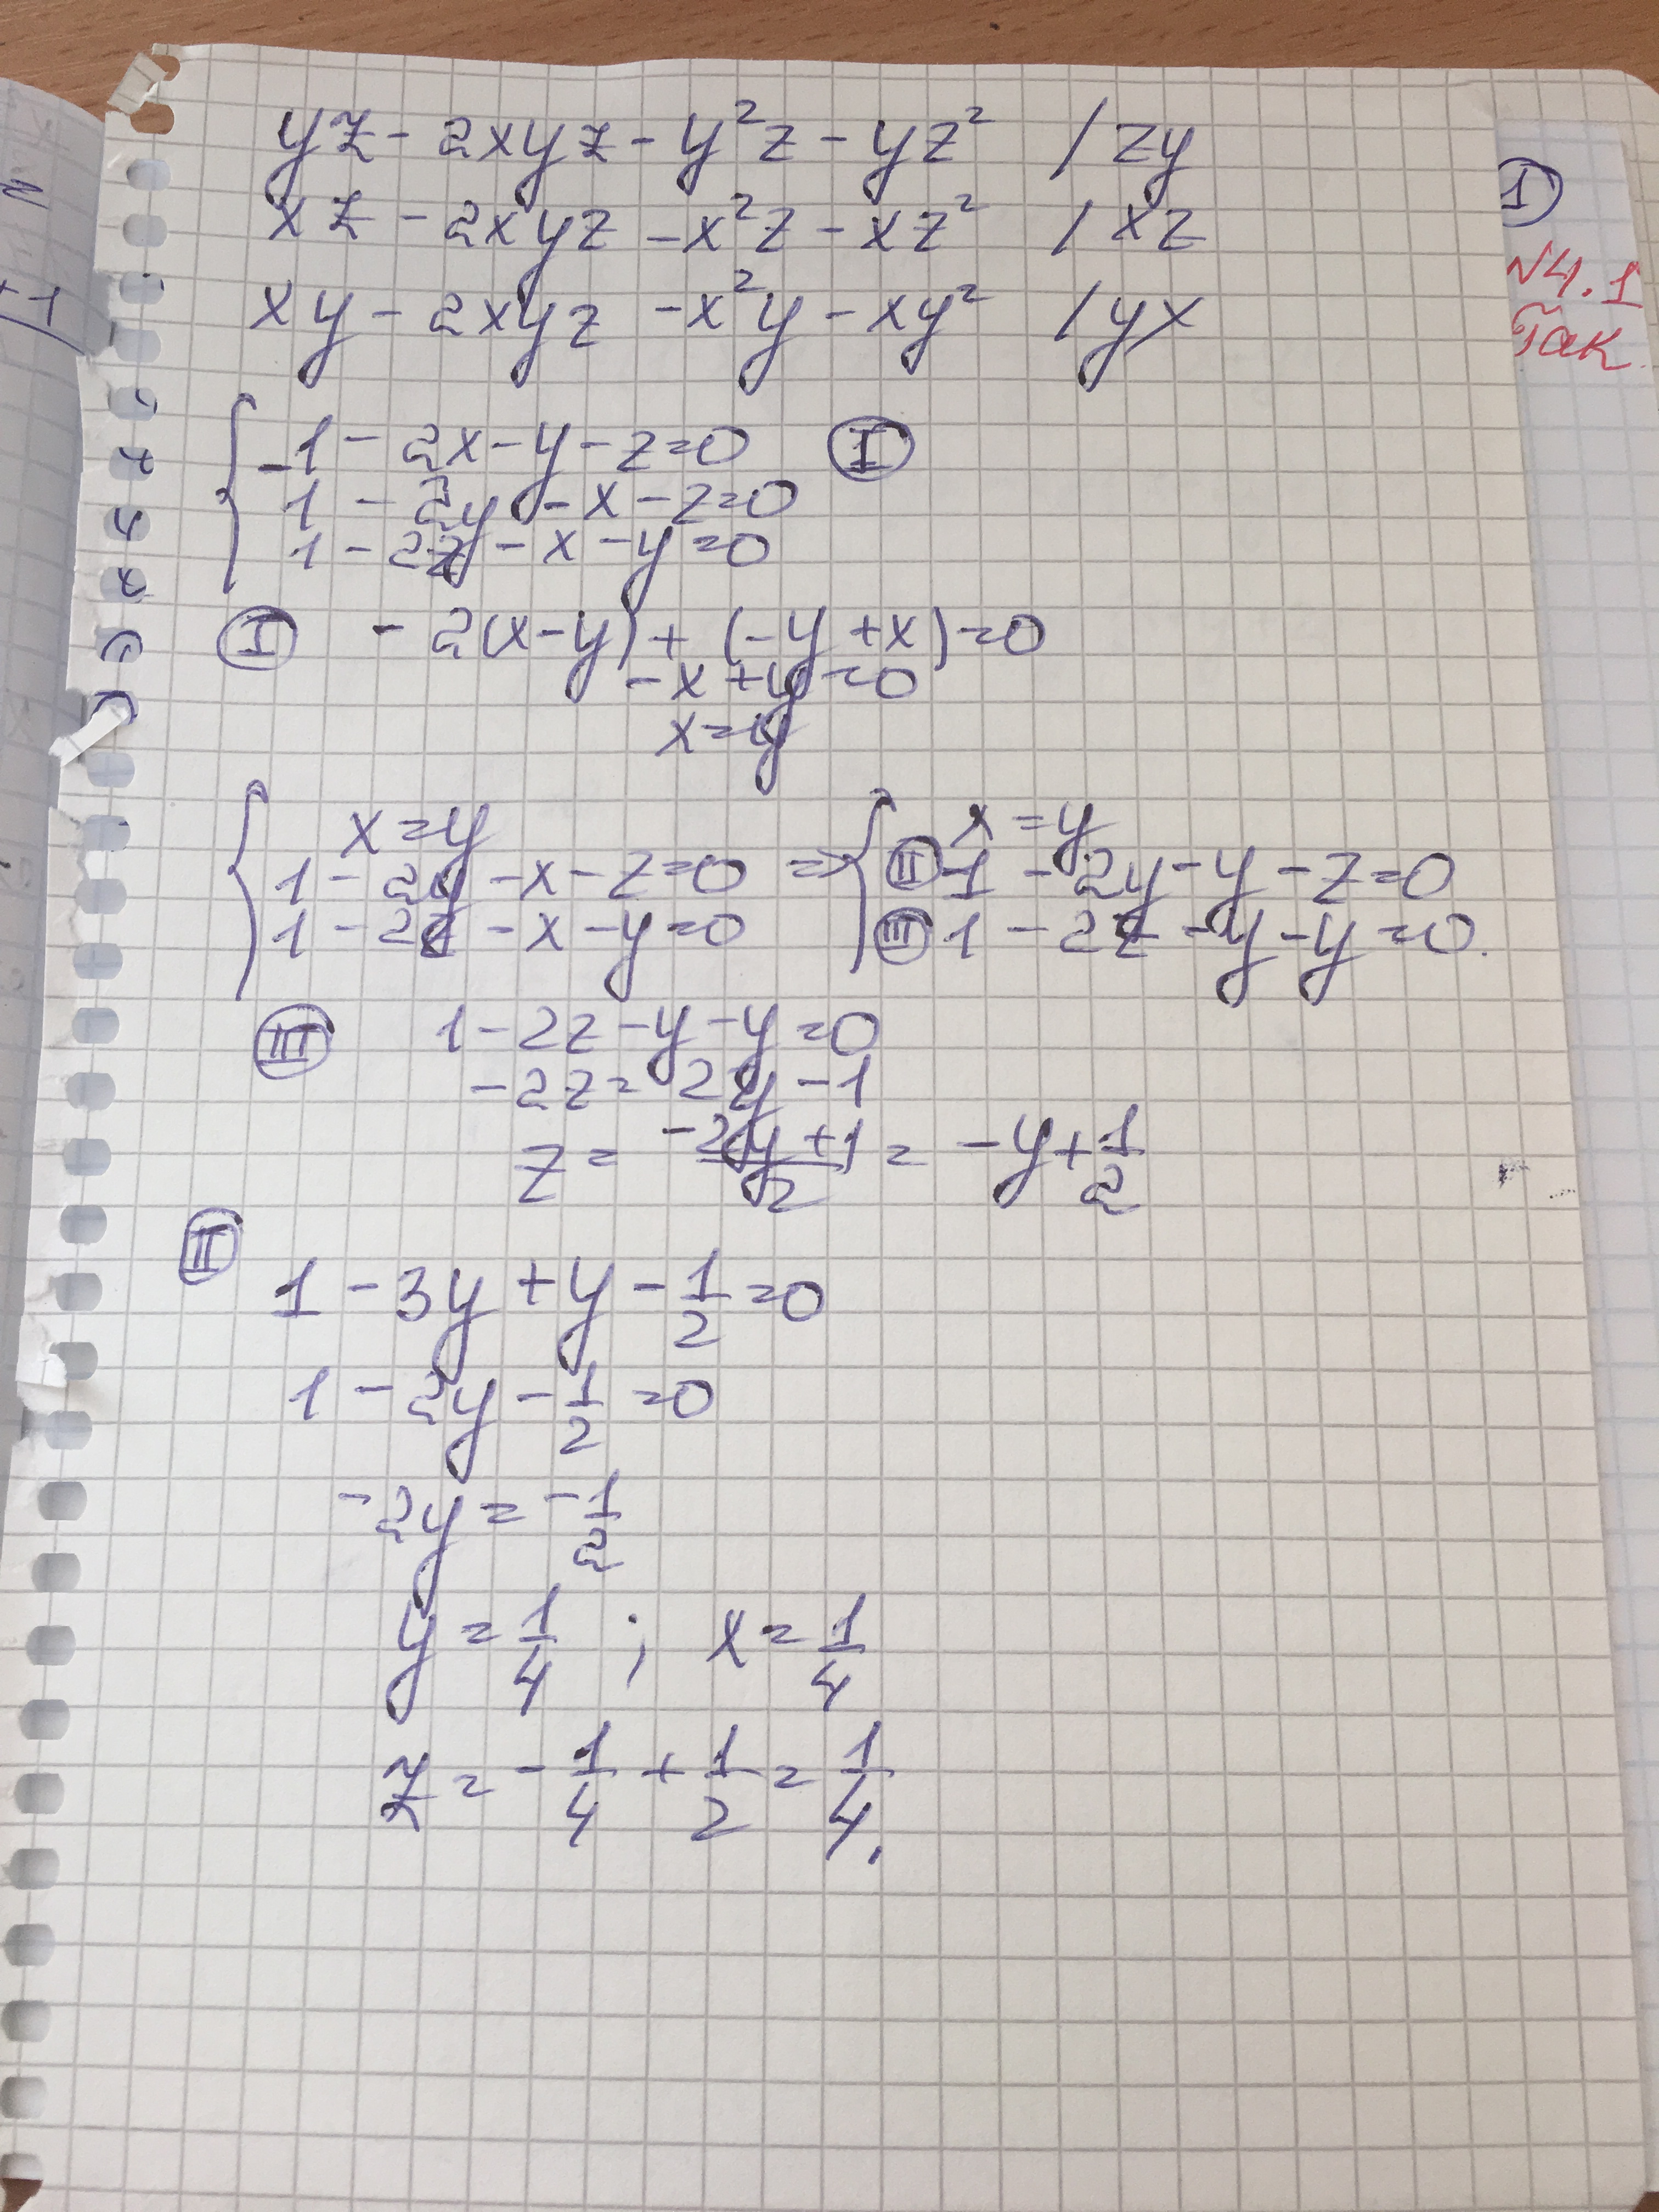 yz - 2xyz - y²z - yz² / zy
xz - 2xyz - x²z - xz² / xz
xy - 2xyz - x²y - xy² / yx
I
N4.1
Так
{ 1 - 2x - y - z = 0 I
- 1 - 2y - x - z = 0
1 - 2z - x - y = 0
I - 2(x - y) + (-y + x) = 0
-x + y = 0
x = y
{ x = y
1 - 2y - x - z = 0
1 - 2z - x - y = 0
=> { x = y
II 1 - 2y - y - z = 0
III 1 - 2z - y - y = 0.
III 1 - 2z - y - y = 0
-2z = 2y - 1
z = (-2y + 1)/2 = -y + 1/2
II
1 - 3y + y - 1/2 = 0
1 - 2y - 1/2 = 0
-2y = -1/2
y = 1/4 ; x = 1/4
z = -1/4 + 1/2 = 1/4.
+1